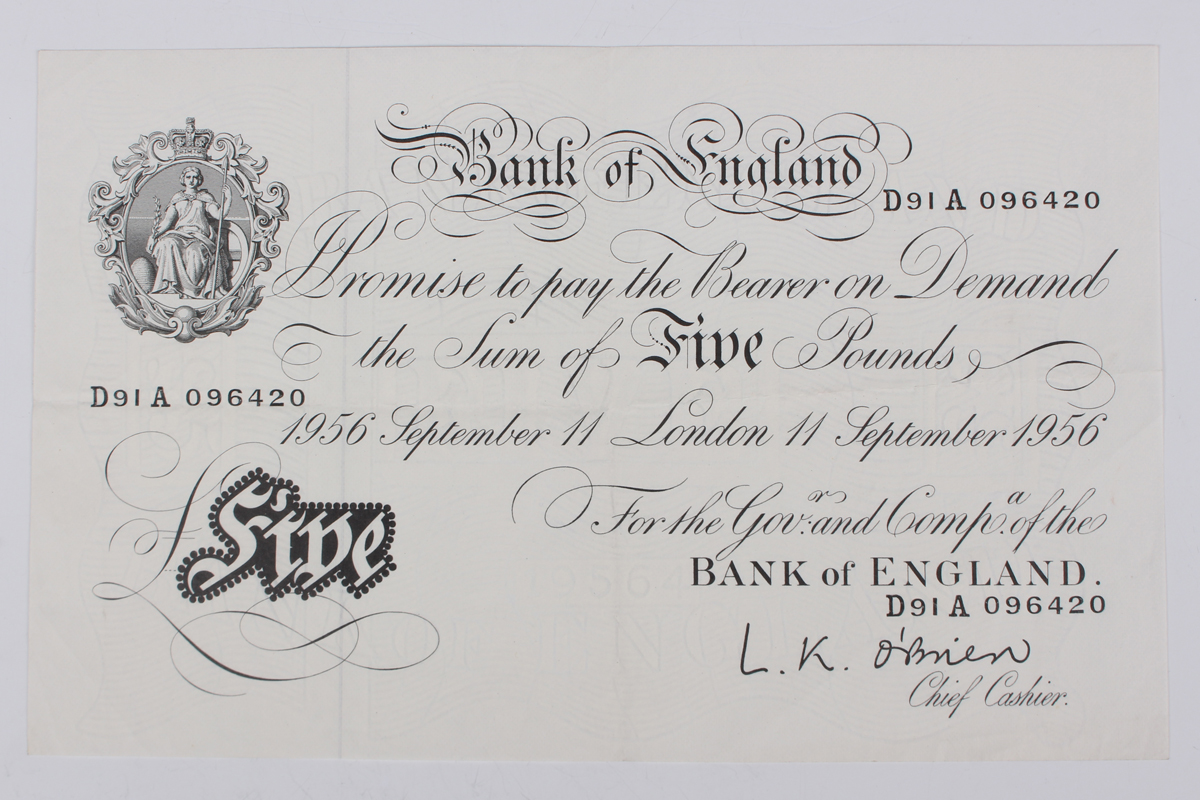 Bank of England
D91A 096420
I Promise to pay the Bearer on Demand
the Sum of Five Pounds
D91A 096420
1956 September 11 London 11 September 1956
£ Five
For the Govr. and Compa. of the
BANK of ENGLAND.
D91A 096420
L. K. O'Brien
Chief Cashier.